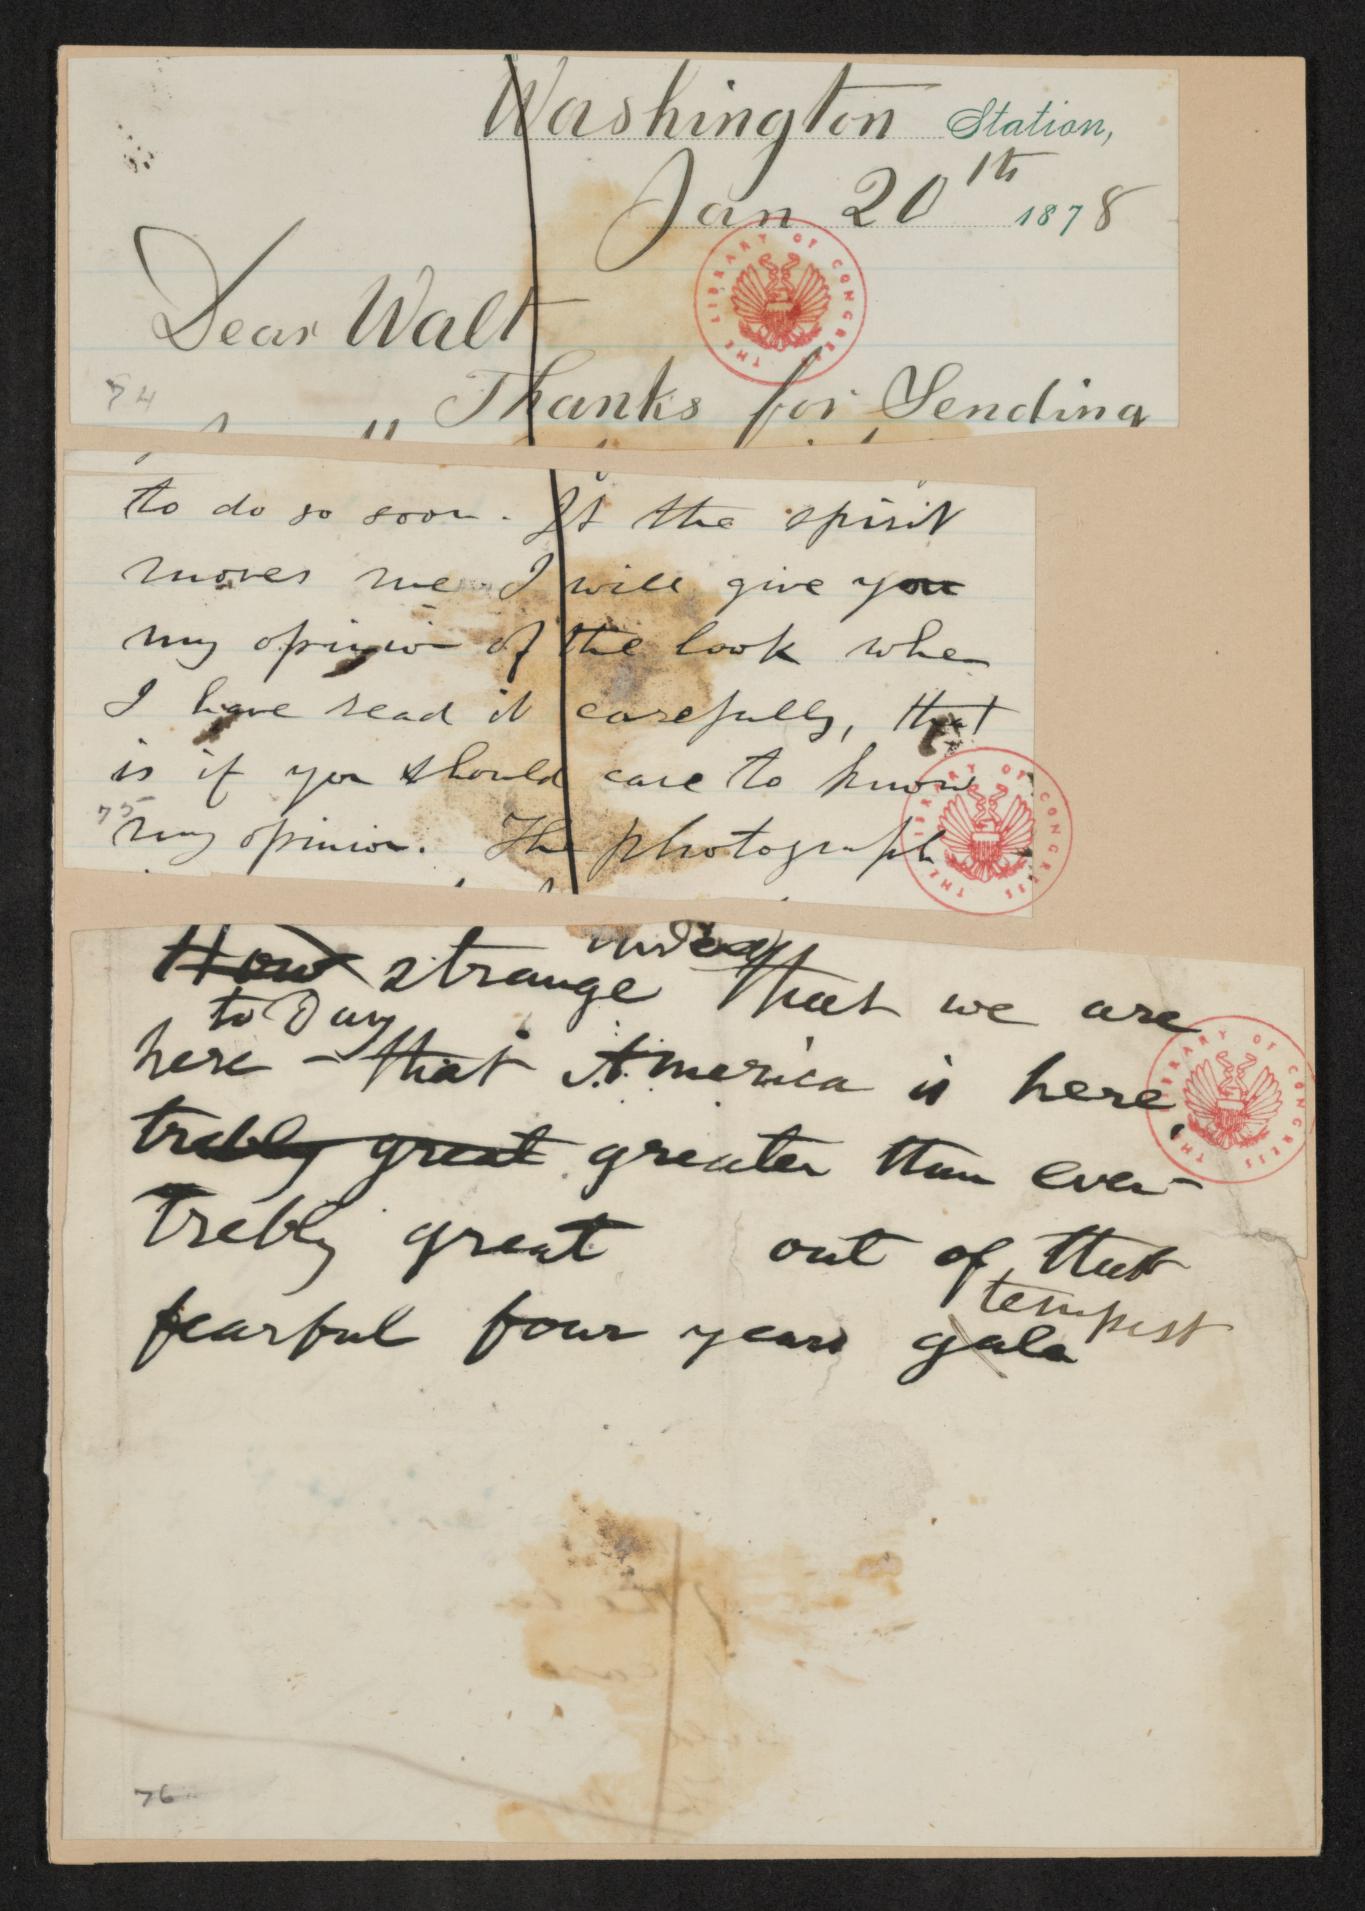 Washington Station,
Jan 20th 1878
THE LIBRARY OF CONGRESS
Dear Walt
Thanks for Sending
74
to do so soon. If the spirit
moves me I will give you
my opinion of the book when
I have read it carefully, that
is if you should care to know
75
my opinion. The photograph
THE LIBRARY OF CONGRESS
How strange that we are
to Day
here – that America is here,
THE LIBRARY OF CONGRESS
trebly great greater than ever –
Trebly great out of that
tempest
fearful four years gale
76